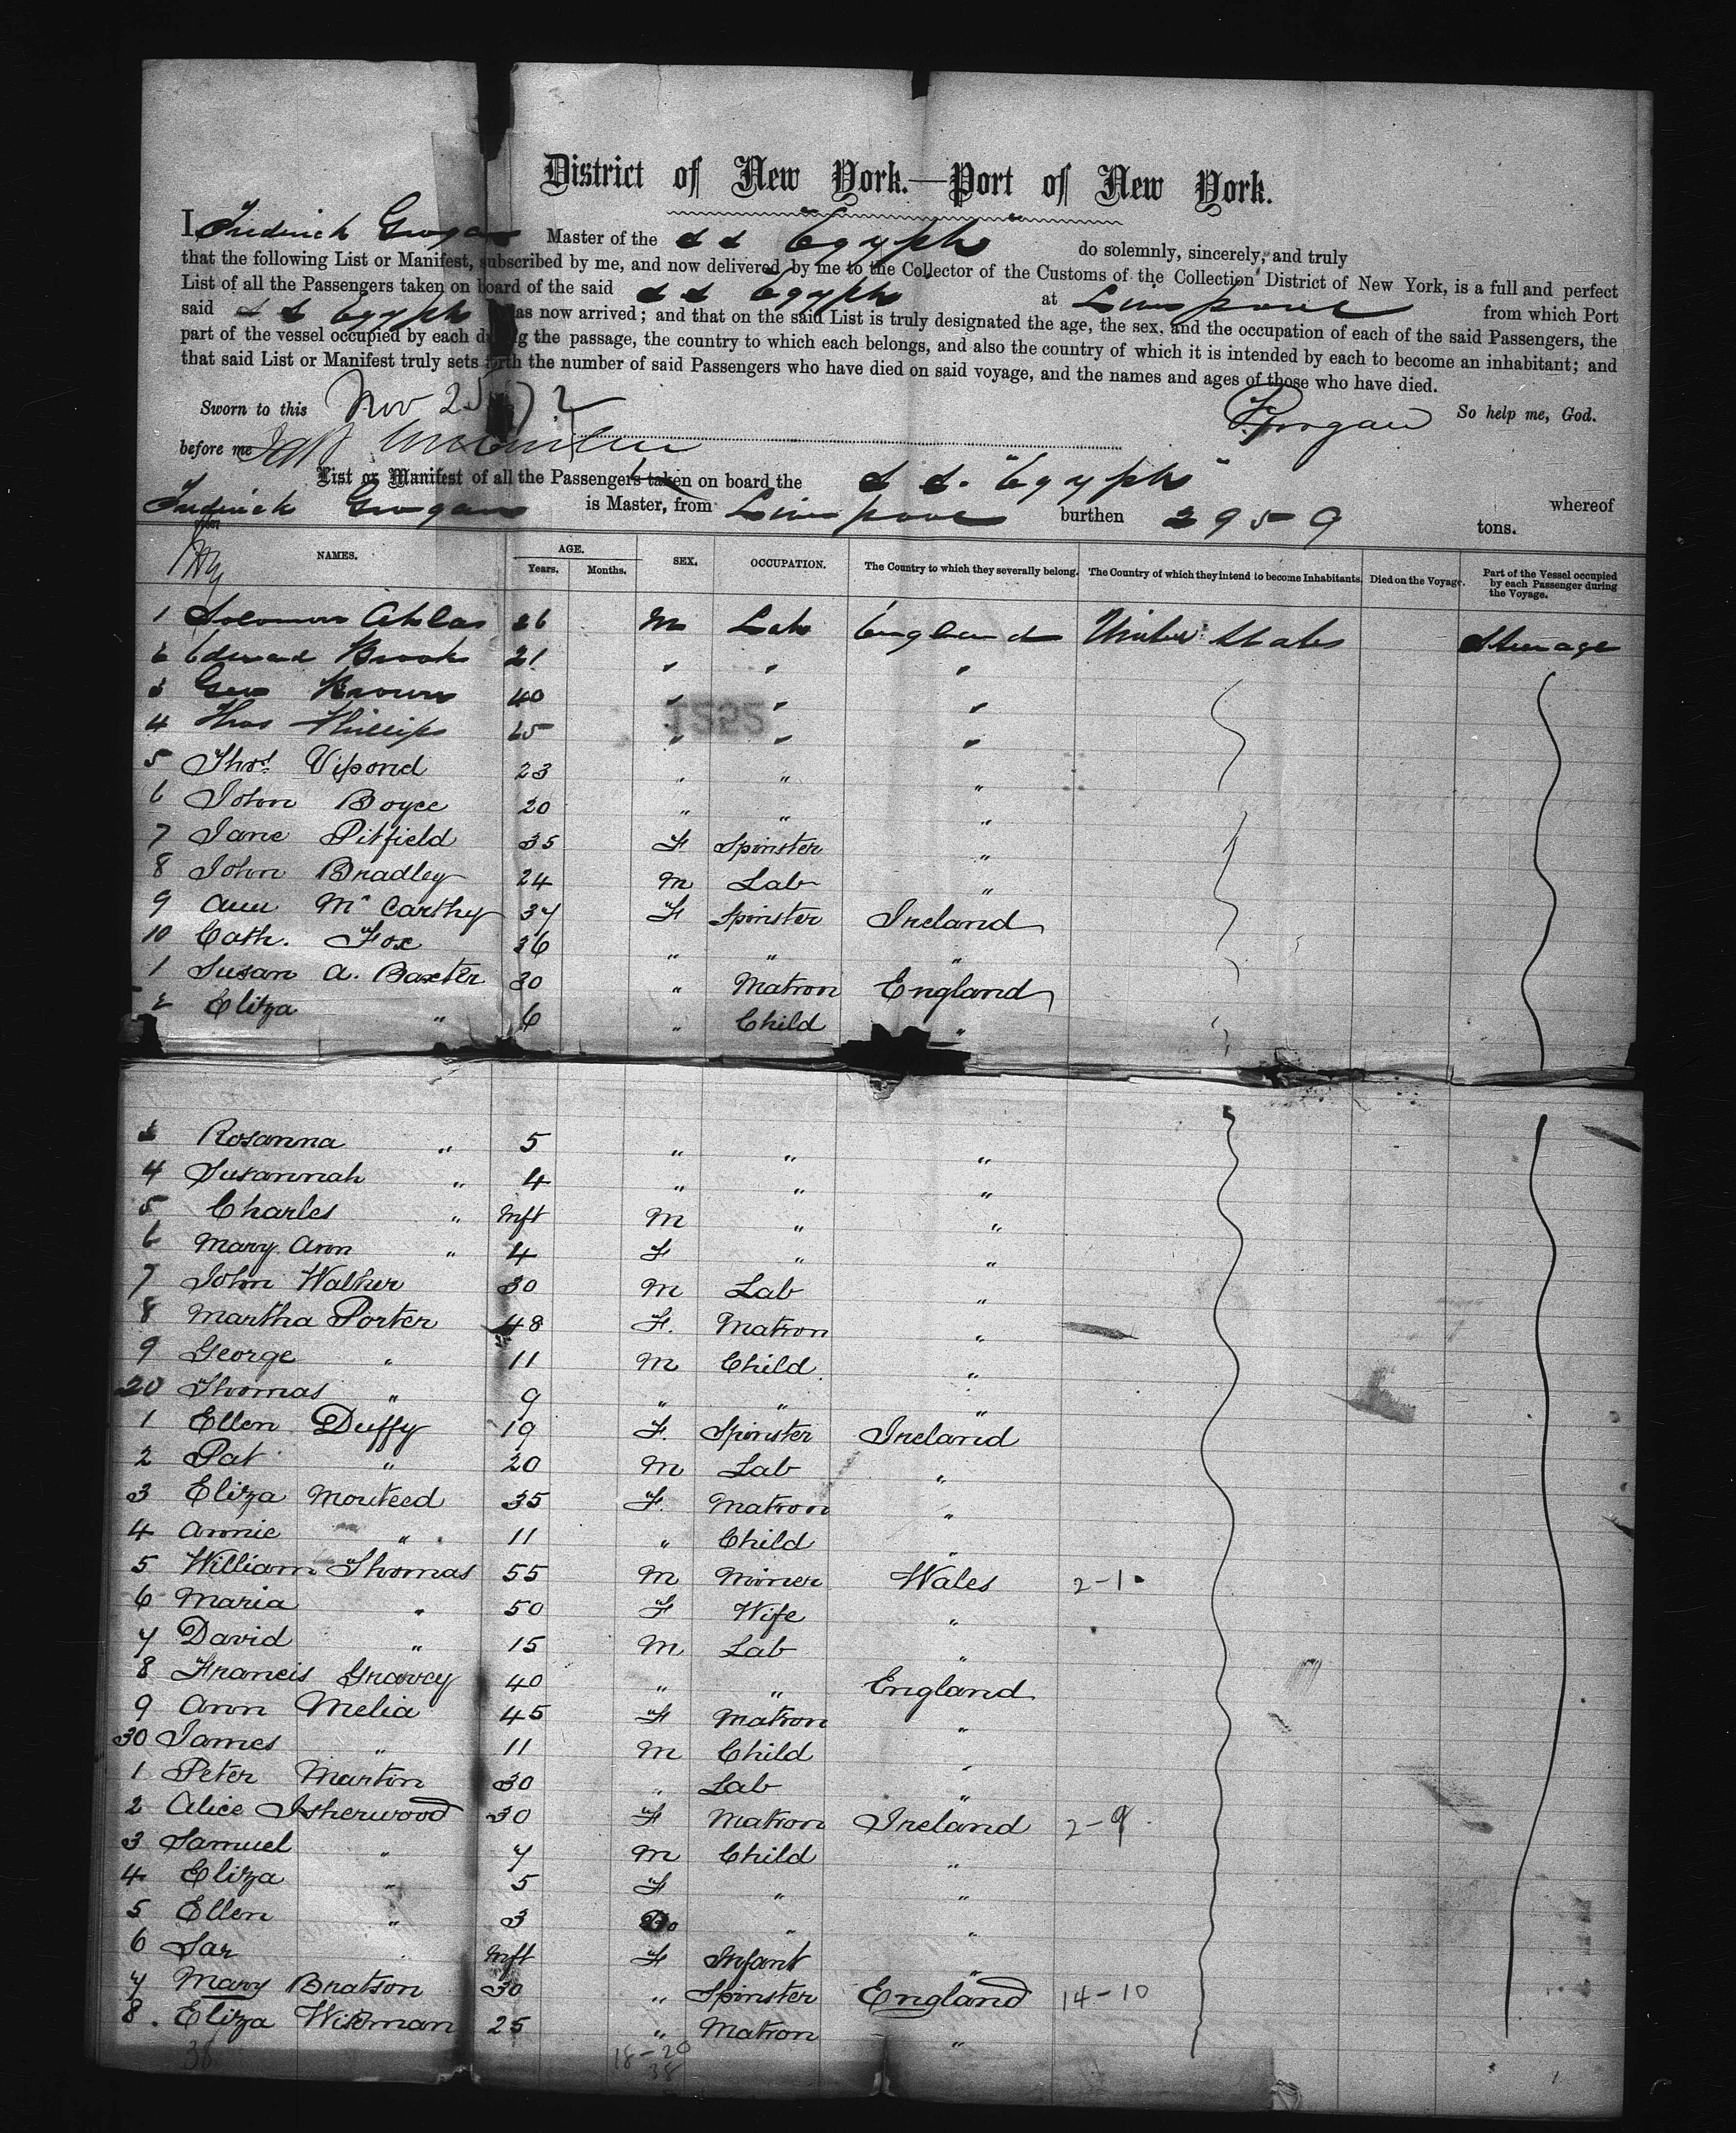 District of New York.—Port of New York.
I, Frederick Grogan Master of the S S "Egypt" do solemnly, sincerely, and truly
that the following List or Manifest, subscribed by me, and now delivered by me to the Collector of the Customs of the Collection District of New York, is a full and perfect
List of all the Passengers taken on board of the said S S Egypt at Liverpool from which Port
said S S Egypt has now arrived; and that on the said List is truly designated the age, the sex, and the occupation of each of the said Passengers, the
part of the vessel occupied by each during the passage, the country to which each belongs, and also the country of which it is intended by each to become an inhabitant; and
that said List or Manifest truly sets forth the number of said Passengers who have died on said voyage, and the names and ages of those who have died.
Sworn to this Nov 25 72 F. Grogan So help me, God.
before me
List or Manifest of all the Passengers taken on board the S S. "Egypt" whereof
Frederick Grogan is Master, from Liverpool burthen 2959 tons.
NAMES. AGE. Years. Months. SEX. OCCUPATION. The Country to which they severally belong. The Country of which they intend to become Inhabitants. Died on the Voyage. Part of the Vessel occupied by each Passenger during the Voyage.
1 Solomon 26 M Lab England United States Steerage
2 Edward Brook 21 " " "
3 Geo Brown 40 " " "
4 Thos Phillips 25 " " "
5 Thos. Vipond 23 " " "
6 John Boyce 20 " " "
7 Jane Pitfield 35 F Spinster "
8 John Bradley 24 M Lab "
9 Ann McCarthy 34 F Spinster Ireland
10 Cath. Fox 36 " " "
1 Susan A. Baxter 30 " Matron England
2 Eliza " 6 " Child "
3 Rosanna " 5 " " "
4 Susannah " 4 " " "
5 Charles " Inft M " "
6 Mary Ann " 4 F " "
7 John Walker 30 M Lab "
8 Martha Porter 48 F. Matron "
9 George " 11 M Child "
20 Thomas " 9 " " "
1 Ellen Duffy 19 F. Spinster Ireland
2 Pat " 20 M Lab "
3 Eliza Mouteed 35 F. Matron "
4 Annie " 11 " Child "
5 William Thomas 55 M Miner Wales 2-1
6 Maria " 50 F Wife "
7 David " 15 M Lab "
8 Francis 40 " " England
9 Ann Melia 45 F Matron "
30 James " 11 M Child "
1 Peter Martin 30 " Lab "
2 Alice Isherwood 30 F Matron Ireland 2-9
3 Samuel " 7 M Child "
4 Eliza " 5 F " "
5 Ellen " 3 Do " "
6 Sar " Inft F Infant "
7 Mary Bratson 30 " Spinster England 14-10
8. Eliza Wileman 25 " Matron "
38 18-20
38